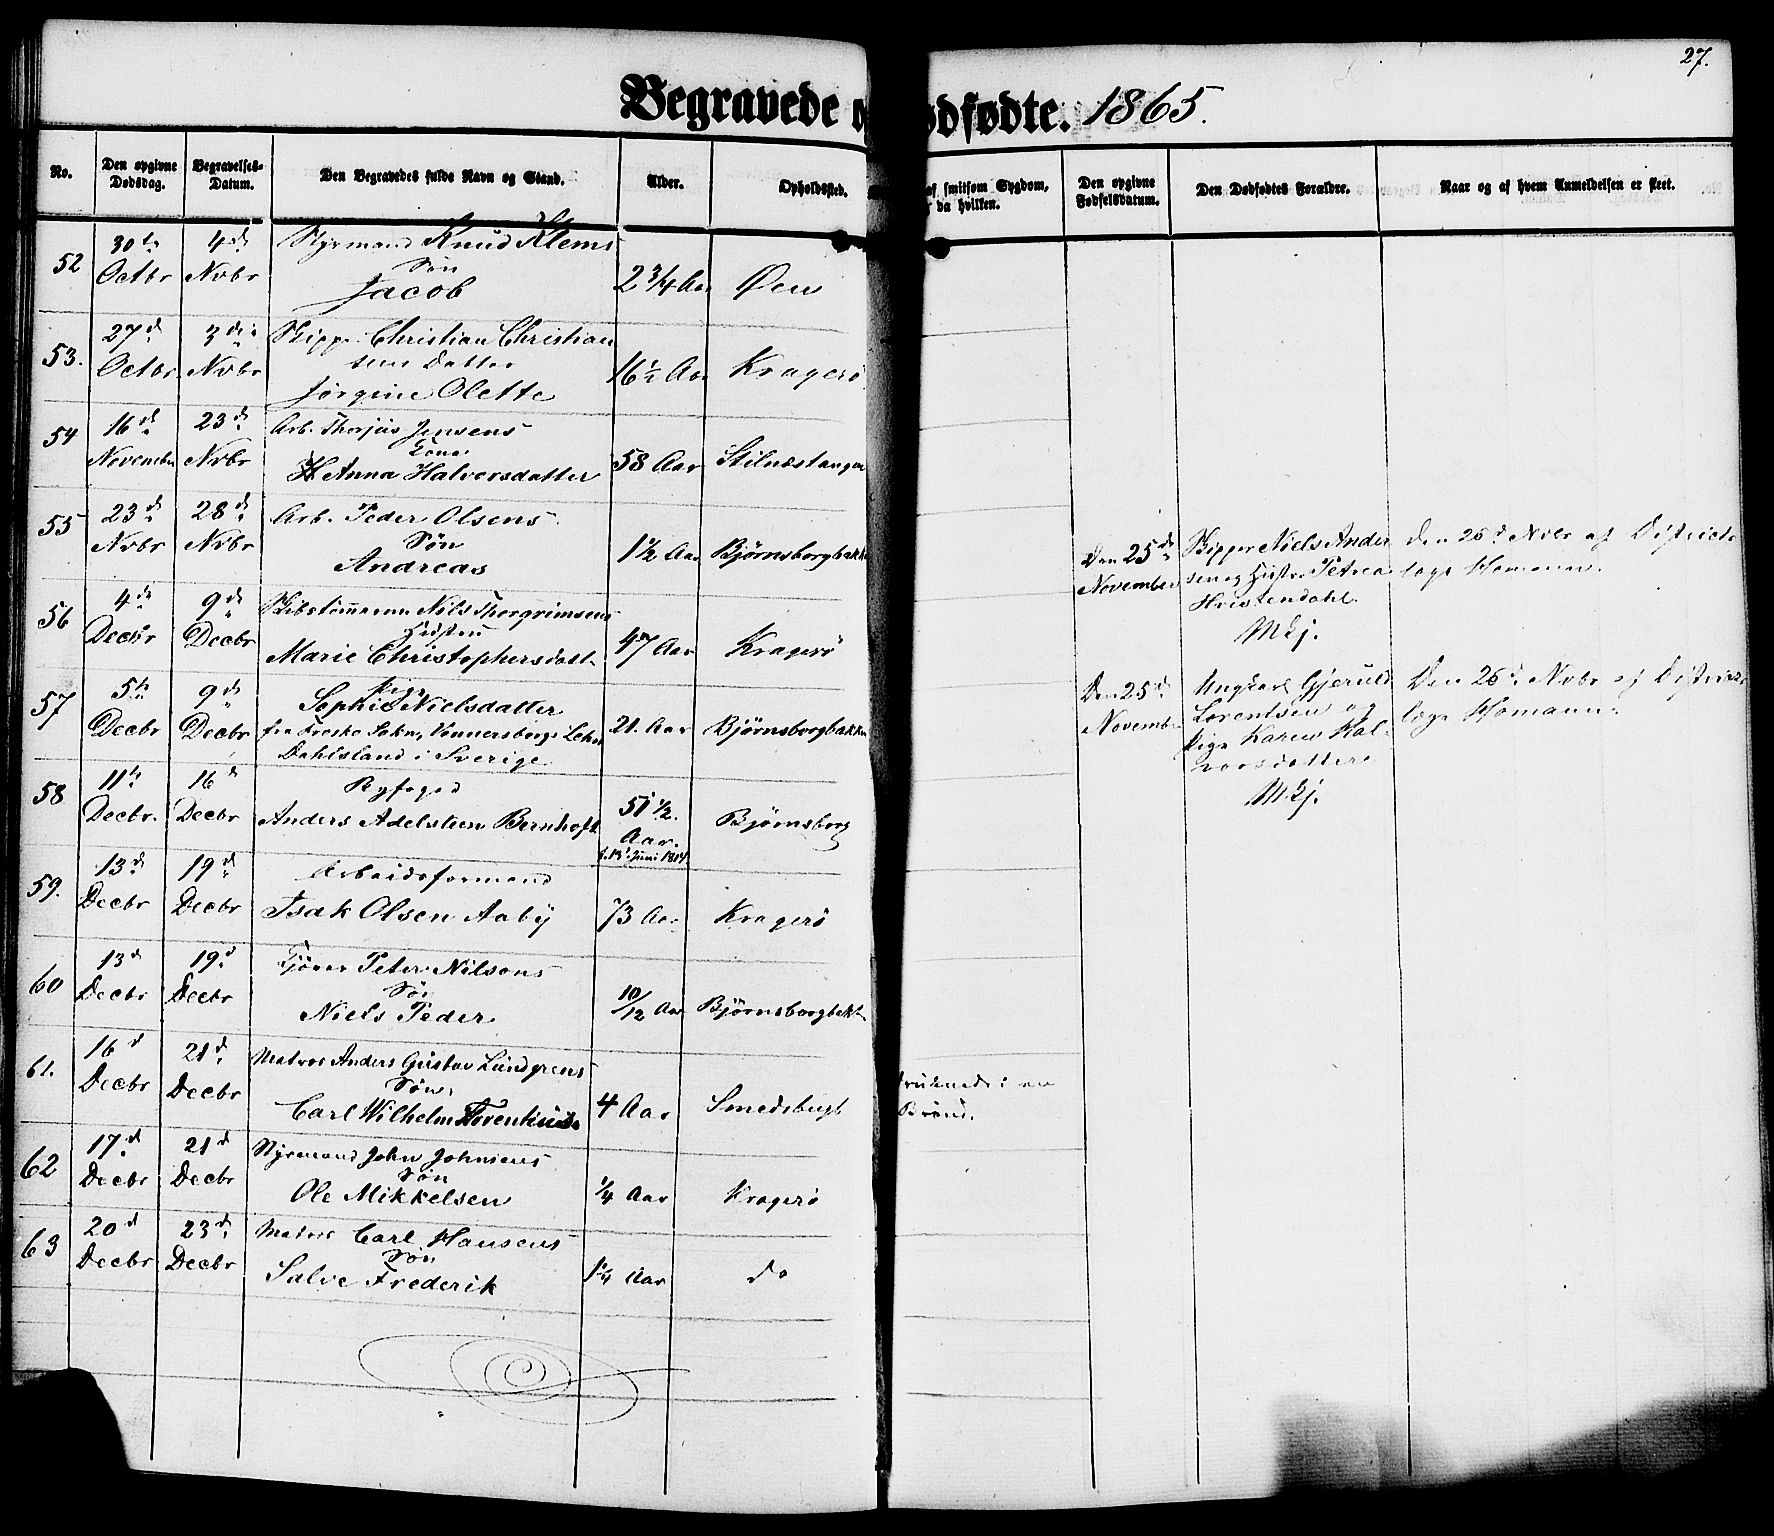 27.
Begravede o
ødfødte. 1865.
No.
Den opgivne
Dødsdag.
Begravelses-
Datum.
Den Begravedes fulde Navn og Stand.
Alder.
Opholdssted.
af smitsom Sygdom,
r da hvilken.
Den opgivne
Fødselsdatum.
Den Dødfødtes Forældre.
Naar og af hvem Anmeldelsen er skeet.
52
30te
Octbr
4de
Nvbr
Styrmand Knud Klems
Søn
Jacob
2 3/4 Aar
Øen
53.
27de
Octbr
3die
Nvbr
Skipper Christian Christian
sens Datter
Jørgine Olette
16 1/2 Aar
Kragerø
54
16de
November
23de
Nvbr
Arb. Thorjus Jensens
Kone
Anna Halvorsdatter
58 Aar
Stilnæstangen
55
23de
Nvbr
28de
Nvbr
Arb. Peder Olsens
Søn
Andreas
1 1/2 Aar
Bjørnsborgbakke
56
4de
Decbr
9de
Decbr
Skibstømmermand Nils Thorgrimsens
Hustru
Marie Christophersdatt
47 Aar
Kragerø
57
5te
Decbr
9de
Decbr
Pige
Sophie Nielsdatter
fra Freske Sokn, Vennersborgs Lehn
Dahlsland i Sverige
21. Aar
Bjørnsborgbakken
58
11te
Decbr.
16de
Decbr
Byfoged
Anders Adelsteen Bernhoft
51 1/2.
Aar.
f. 13de Juni 1814
Bjørnsborg
59.
13de
Decbr
19de
Decbr
Arbeidsformand
Isak Olsen Aaby
73 Aar
Kragerø
60
13de
Decbr
19de
Decbr
Peter Nilsens
Søn
Niels Peder
10/12 Aar
Bjørnsborgbakk
61.
16d
Decbr
21de
Decbr
Matros Anders Gustav Lundgrens
Søn
Carl Wilhelm
4 Aar
Smedsbugt
druknede i en
Brønd.
62
17de
Decbr
21de
Decbr
Styrmand John Johnsens
Søn
Ole Mikkelsen
1/4 Aar
Kragerø
63
20d
Decbr
23de
Decbr
Matros Carl Hansens
Søn
Salve Frederik
1 1/4 Aar
do
Den 25de
November
Skipper Niels Ander
sen og Hustru Petrea
Hvistendahl.
Mkj.
Den 26de Nvbr af Districts
læge Homann.
Den 25de
Novembr
Ungkarl Gjeruld
Lorentsen og
Pige Karen Hal-
vorsdatter
Mkj.
Den 26de Nvbr af Districts
læge Homann.